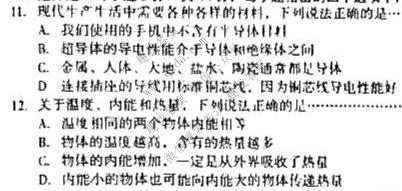 11. 现代生产生活中需要各种各样的材料，下列说法正确的是…
A. 我们使用的手机中不含有半导体材料
B. 超导体的导电性能介于导体和绝缘体之间
C. 金属、人体、大地、盐水、陶瓷通常都是导体
D 连接插座的导线用标准铜芯线，因为铜芯线导电性能好
12. 关于温度、内能和热量，下列说法正确的是………………
A. 温度相同的两个物体内能相等
B. 物体的温度越高，含有的热量越多
C. 物体的内能增加，一定是从外界吸收了热量
D. 内能小的物体也可能向内能大的物体传递热量